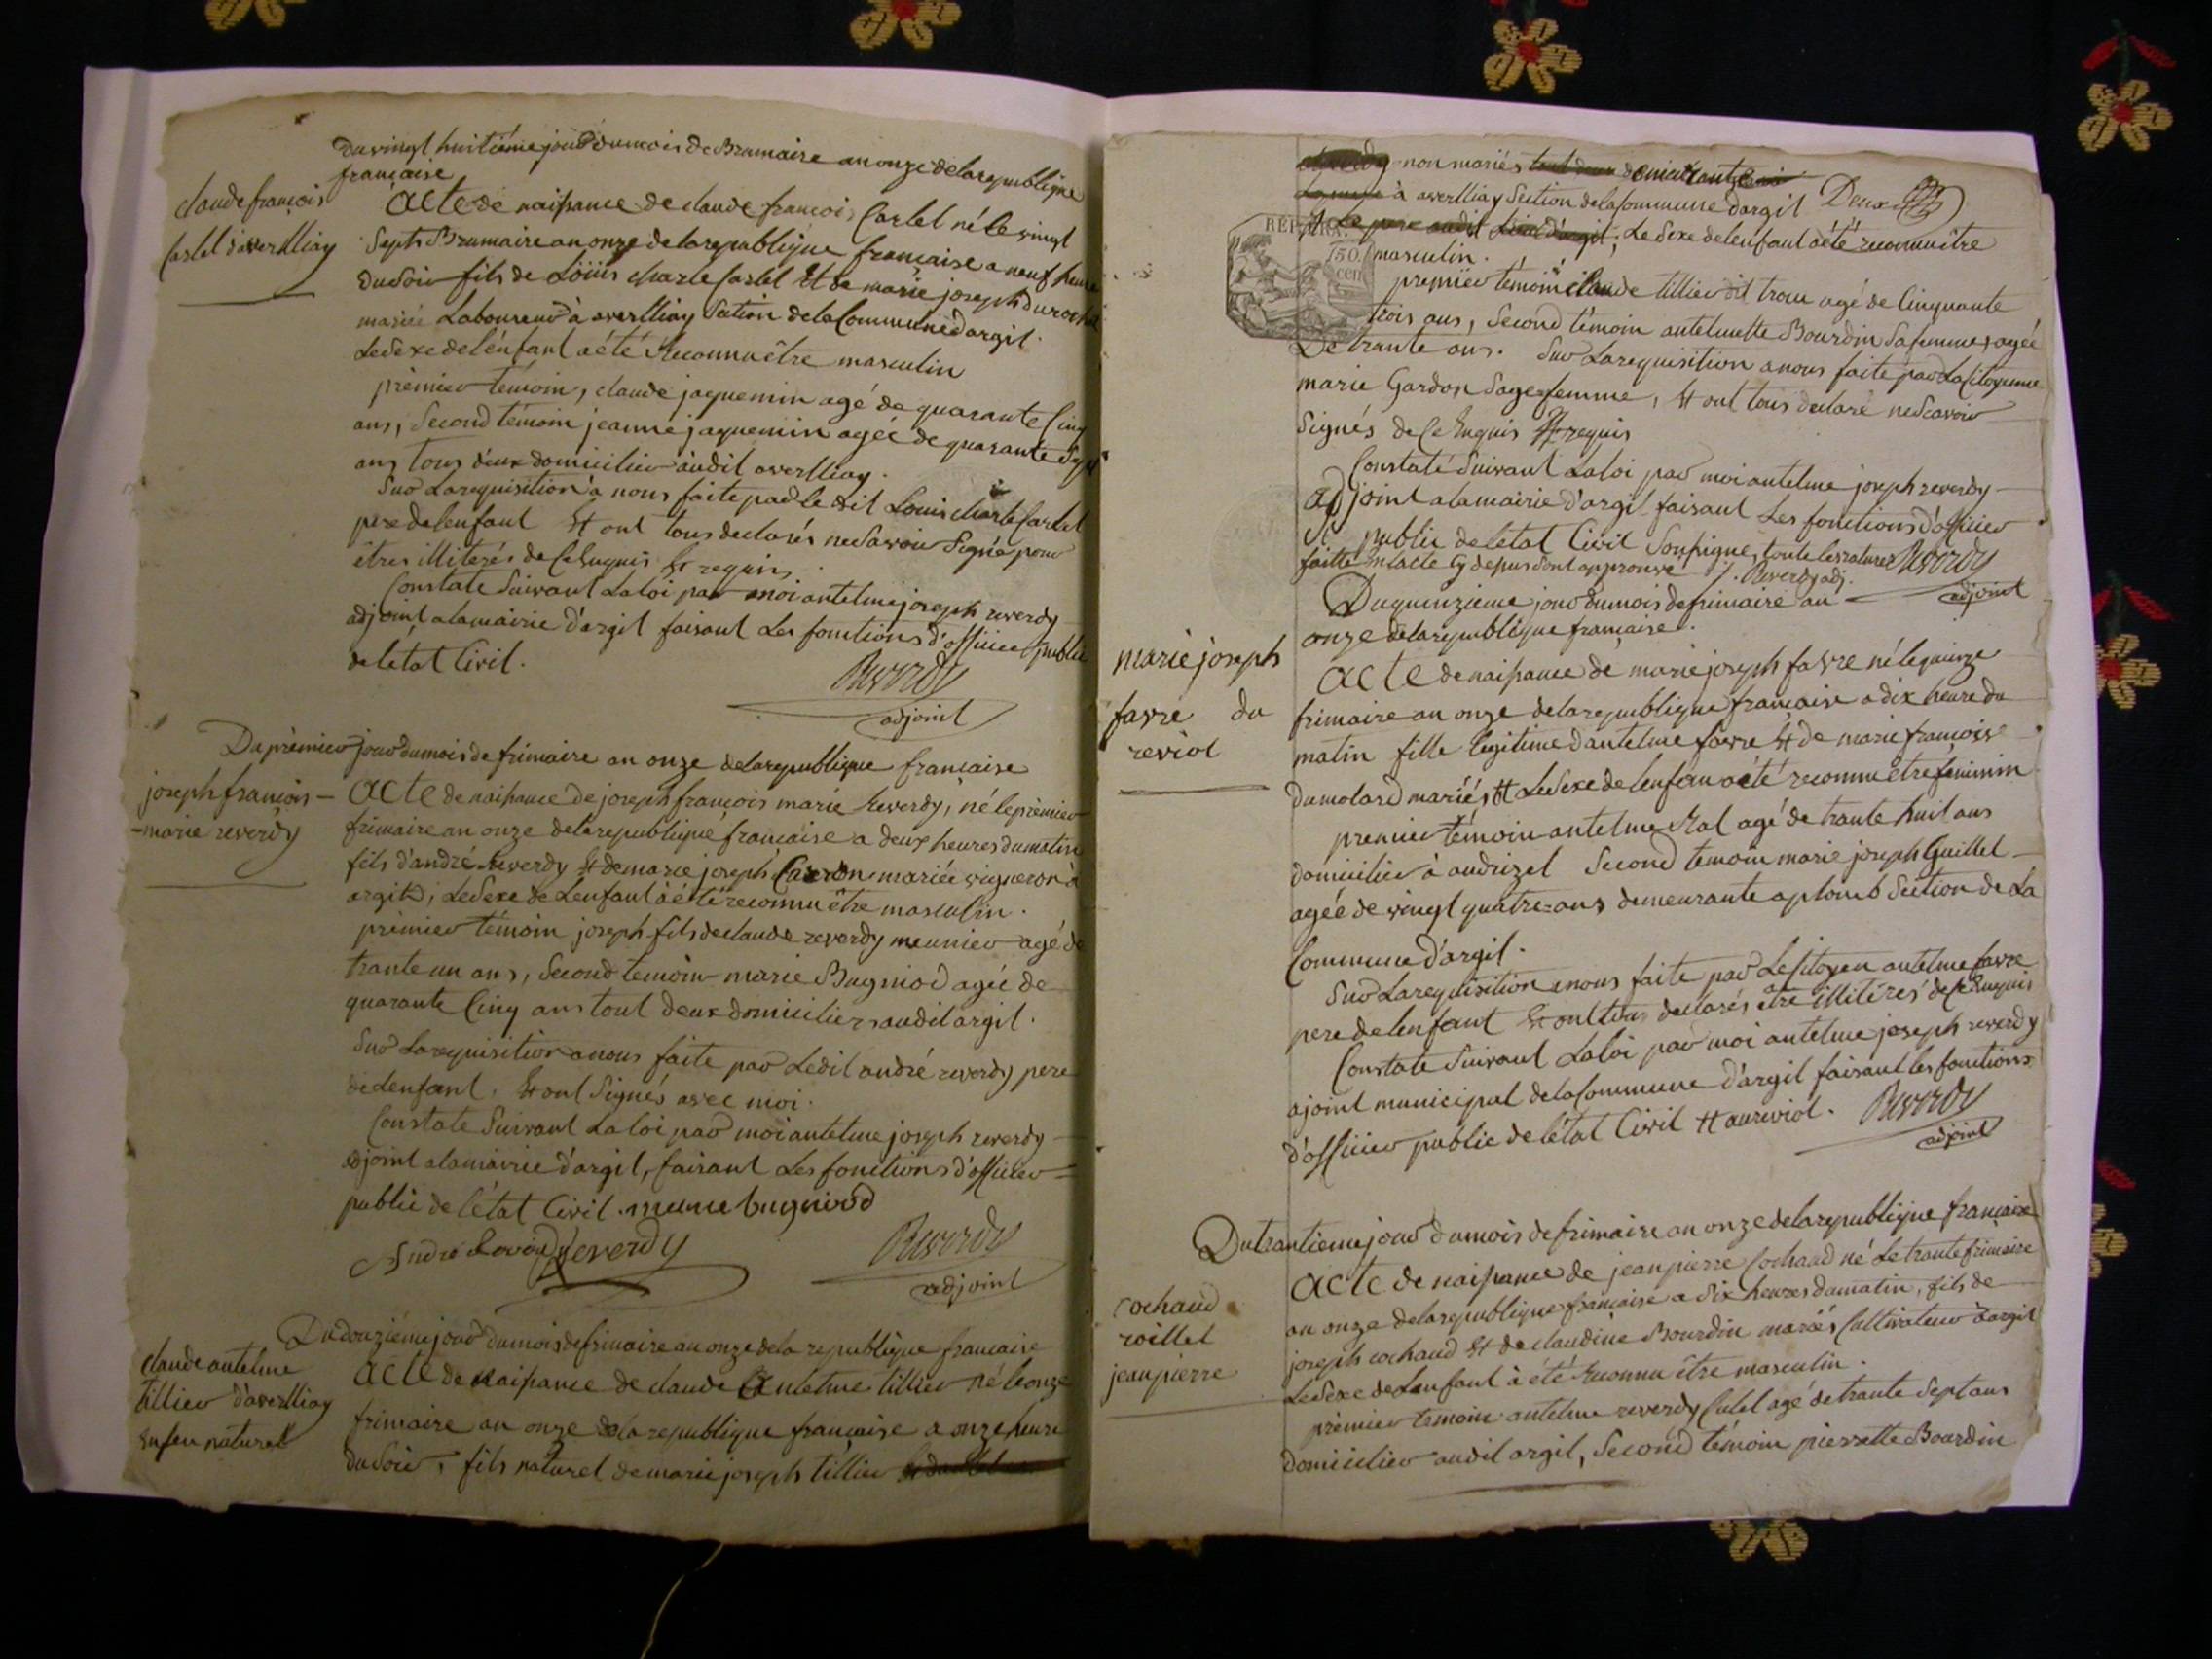 Du vingt huitiéme jour du mois de Brumaire an onze de la republique
française
claude françois
Castel d'averlliay
Acte de naissance de claude françois Castel né le vingt
Sept Brumaire an onze de la republique francaise a neuf heure
du Soir fils de Loüis charle Castel Et de marie joseph duroche
mariés Laboureur à averlliay Section de la Commune d'argit.
Le Sexe de l'énfant a été Reconnu être masculin
prèmier témoin, claude jaquemin agé de quarante Cinq
ans, Second témoin jeanne jaquemin agée de quarante Sept
ans tous deux domicilier audit averlliay.
Sur La requisition à nous faite par Le dit Louis charle Castel
pere de lenfant Et ont tous declarés ne Savoir Signé pour
êtres illiterés de Ce Enquis Et requis
Constate Suivant La loi par moi antelme joseph reverdy
adjoint a la mairie d'argit faisant Les fonctions d'officier public
de létat Civil.
Reverdy
adjoint
Du prèmier jour du mois de frimaire an onze de la republique francaise
joseph françois
-marie reverdy
Acte de naissance de joseph françois marie Reverdy, né le prèmier
frimaire an onze de la republique française a deux heures du matin
fils d'andré Reverdy Et de marie joseph Carron mariés vigneron à
argit; Le Sexe de Lenfant à été reconnu être masculin.
prèmier témoin joseph fils de claude reverdy meunier agé de
trante un ans, Second temoin marie Bugniod agée de
quarante Cinq ans tout deux domiciliers audit argit.
Sur La requisition a nous faite par Ledit andré reverdy pere
de Lenfant, Et ont Signés avec moi.
Constate Suivant La loi par moi antelme joseph reverdy
adjoint a la mairie d'argit, faisant Les fonctions d'officier
public de létat Civil. marie bugniod
André Reverdy Reverdy
Reverdy
adjoint
Du douziéme jour du mois de frimaire an onze de la republique francaise
claude antelme
tillier d'averlliay
enfen naturel
Acte de Naissance de claude Antelme tillier né le onze
frimaire an onze de la republique française a onze heure
du Soir, fils naturel de marie joseph tillier
non mariés demeurante
à averlliay Section de la Commune d'argit Deux
RÉP. FRA.
50
cen
Le Sexe de lénfant a été reconnu être
masculin.
premier témoin claude tillier dit trou agé de Cinquante
trois ans, Second témoin antelmette Bourdin Sa femme, agée
De trante ans. Sur La requisition a nous faite par La Citoyenne
marie Gardon Sage femme, Et ont tous declaré ne Scavoir
Signés de Ce Enquis Et requis
Constaté Suivant La loi par moi antelme joseph reverdy
adjoint a la mairie d'argit faisant Les fonctions d'officier
public de létat Civil Soussigné, toute les ratures Reverdy
faitte en lacte Cy depus Sont approuvé J. Reverdy adj.
adjoint
Du quinzieme jour du mois de frimaire an
onze de la republique française.
marie joseph
favre du
reviol
Acte de naissance de marie joseph favre né le quinze
frimaire an onze de la republique française a dix heure du
matin fille legitime d'antelme favre Et de marie françoise
dumolard mariés Et Le Sexe de lenfan a été reconnu être féminin
premier témoin antelme Mal agé de trante huit ans
domicilier à andrizet Second temoin marie joseph Guillet
agée de vingt quatre=ans demeurante a plomb Section de La
Commune d'argit.
Sur La requisition a nous faite par Le Citoyen antelme favre
pere de lenfant Et ont tous declarés être illitérés de Ce Enquis
Constate Suivant La loi par moi antelme joseph reverdy
ajoint municipal de la Commune d'argit faisant les fonctions
d'officier public de létat Civil Et au reviol. Reverdy
adjoint
Du trantieme jour du mois de frimaire an onze de la republique française
cochaud
roillet
jean pierre
Acte de naissance de jean pierre Cochaud né Le trante frimaire
an onze de la republique francaise a Six heures du matin, fils de
joseph cochaud Et de claudine Bourdin mariés Cultivateur d'argit
Le Sexe de Lenfant à été Reconnu être masculin.
prèmier temoin antelme reverdy Catet agé de trante Sept ans
domicilier audit argit, Second témoin pierrette Bourdin